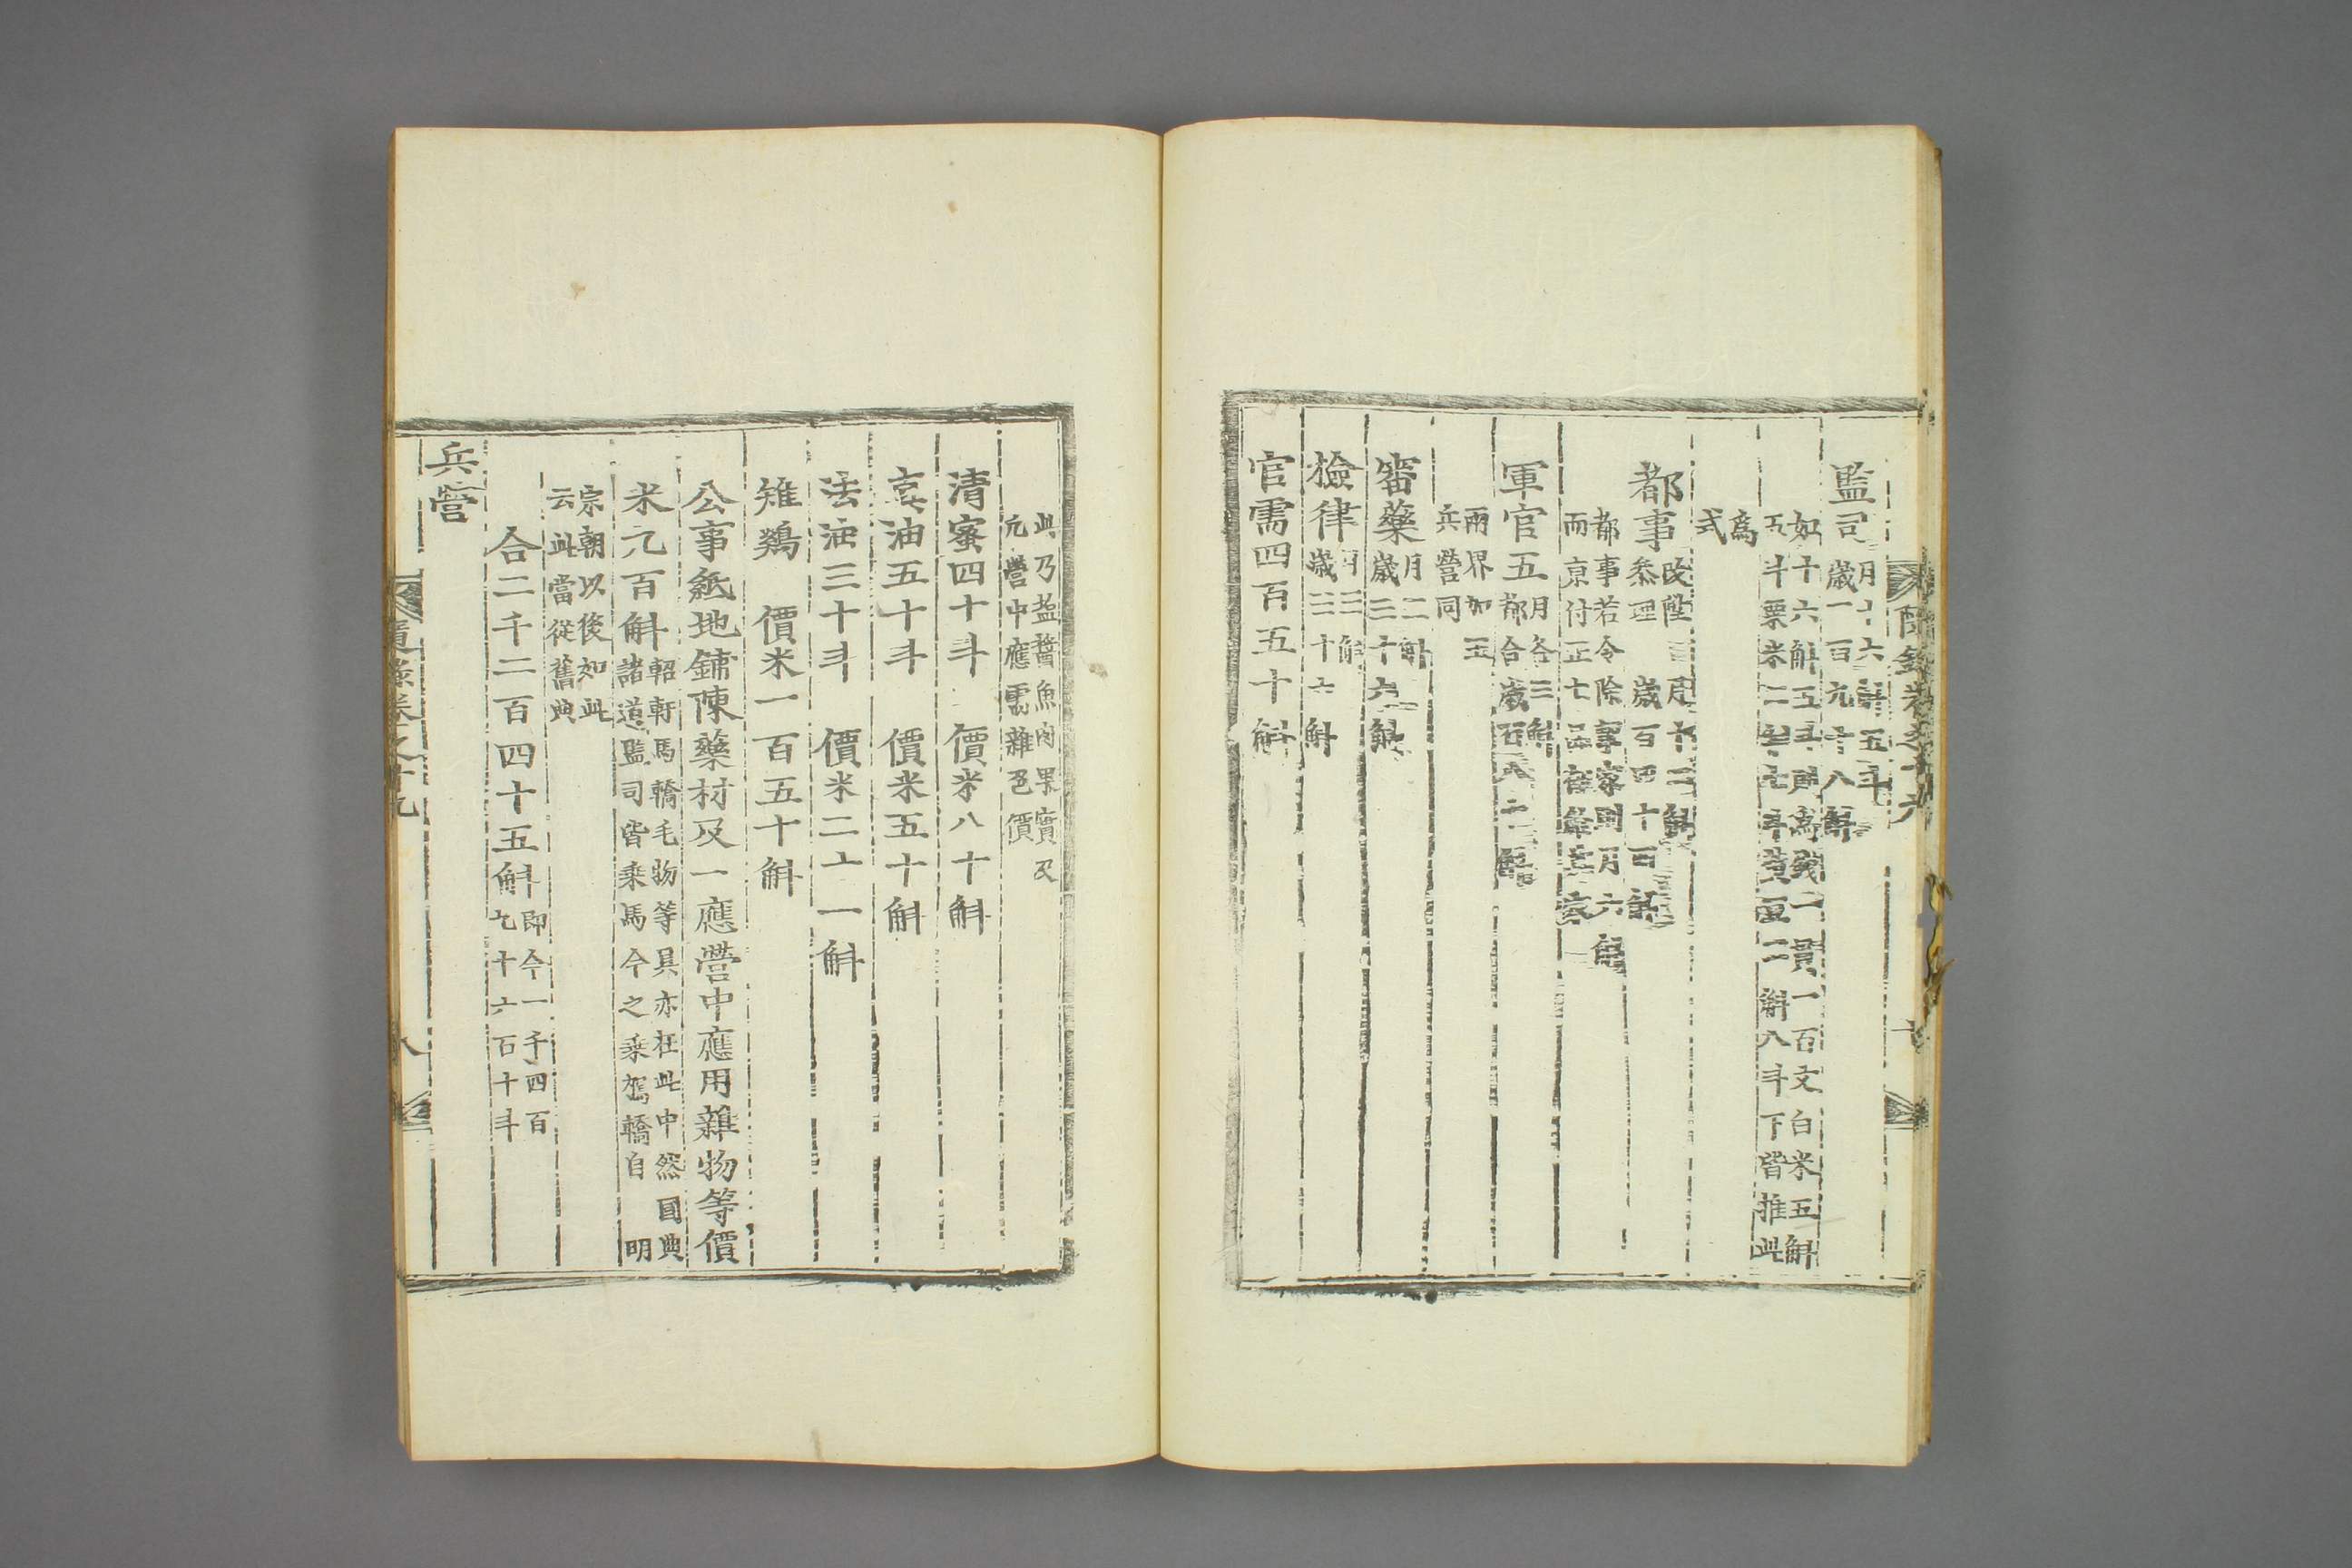 監司月十六斛五斗
歲一百九十八斛
如十六斛五斗則爲錢二貫一百文白米五斛
五斗粟米二斗七升黃豆二斛八斗下皆推此
爲
式
都事
歲百四十四斛
都事若令除事家則月六斛
而京付正七品
軍官五月各三斛
都合歲百八十斛
兩界加五
兵營同
審藥月二斛
歲三十六斛
檢律月三斛
歲三十六斛
官需四百五十斛
此乃塩醬魚肉果實及
元營中應需雜色價
清蜜四十斗 價米八十斛
真油五十斗 價米五十斛
法油三十斗 價米二十一斛
雉鷄 價米一百五十斛
公事紙地鋪陳藥材及一應營中應用雜物等價
米六百斛軺軒馬轎毛物等具亦在此中然國典
諸道監司皆乘馬今之乘駕轎自 明
宗朝以後如此
云此當從舊典
合二千二百四十五斛即今一千四百
九十六石十斗
兵營
隨錄卷之十九
八